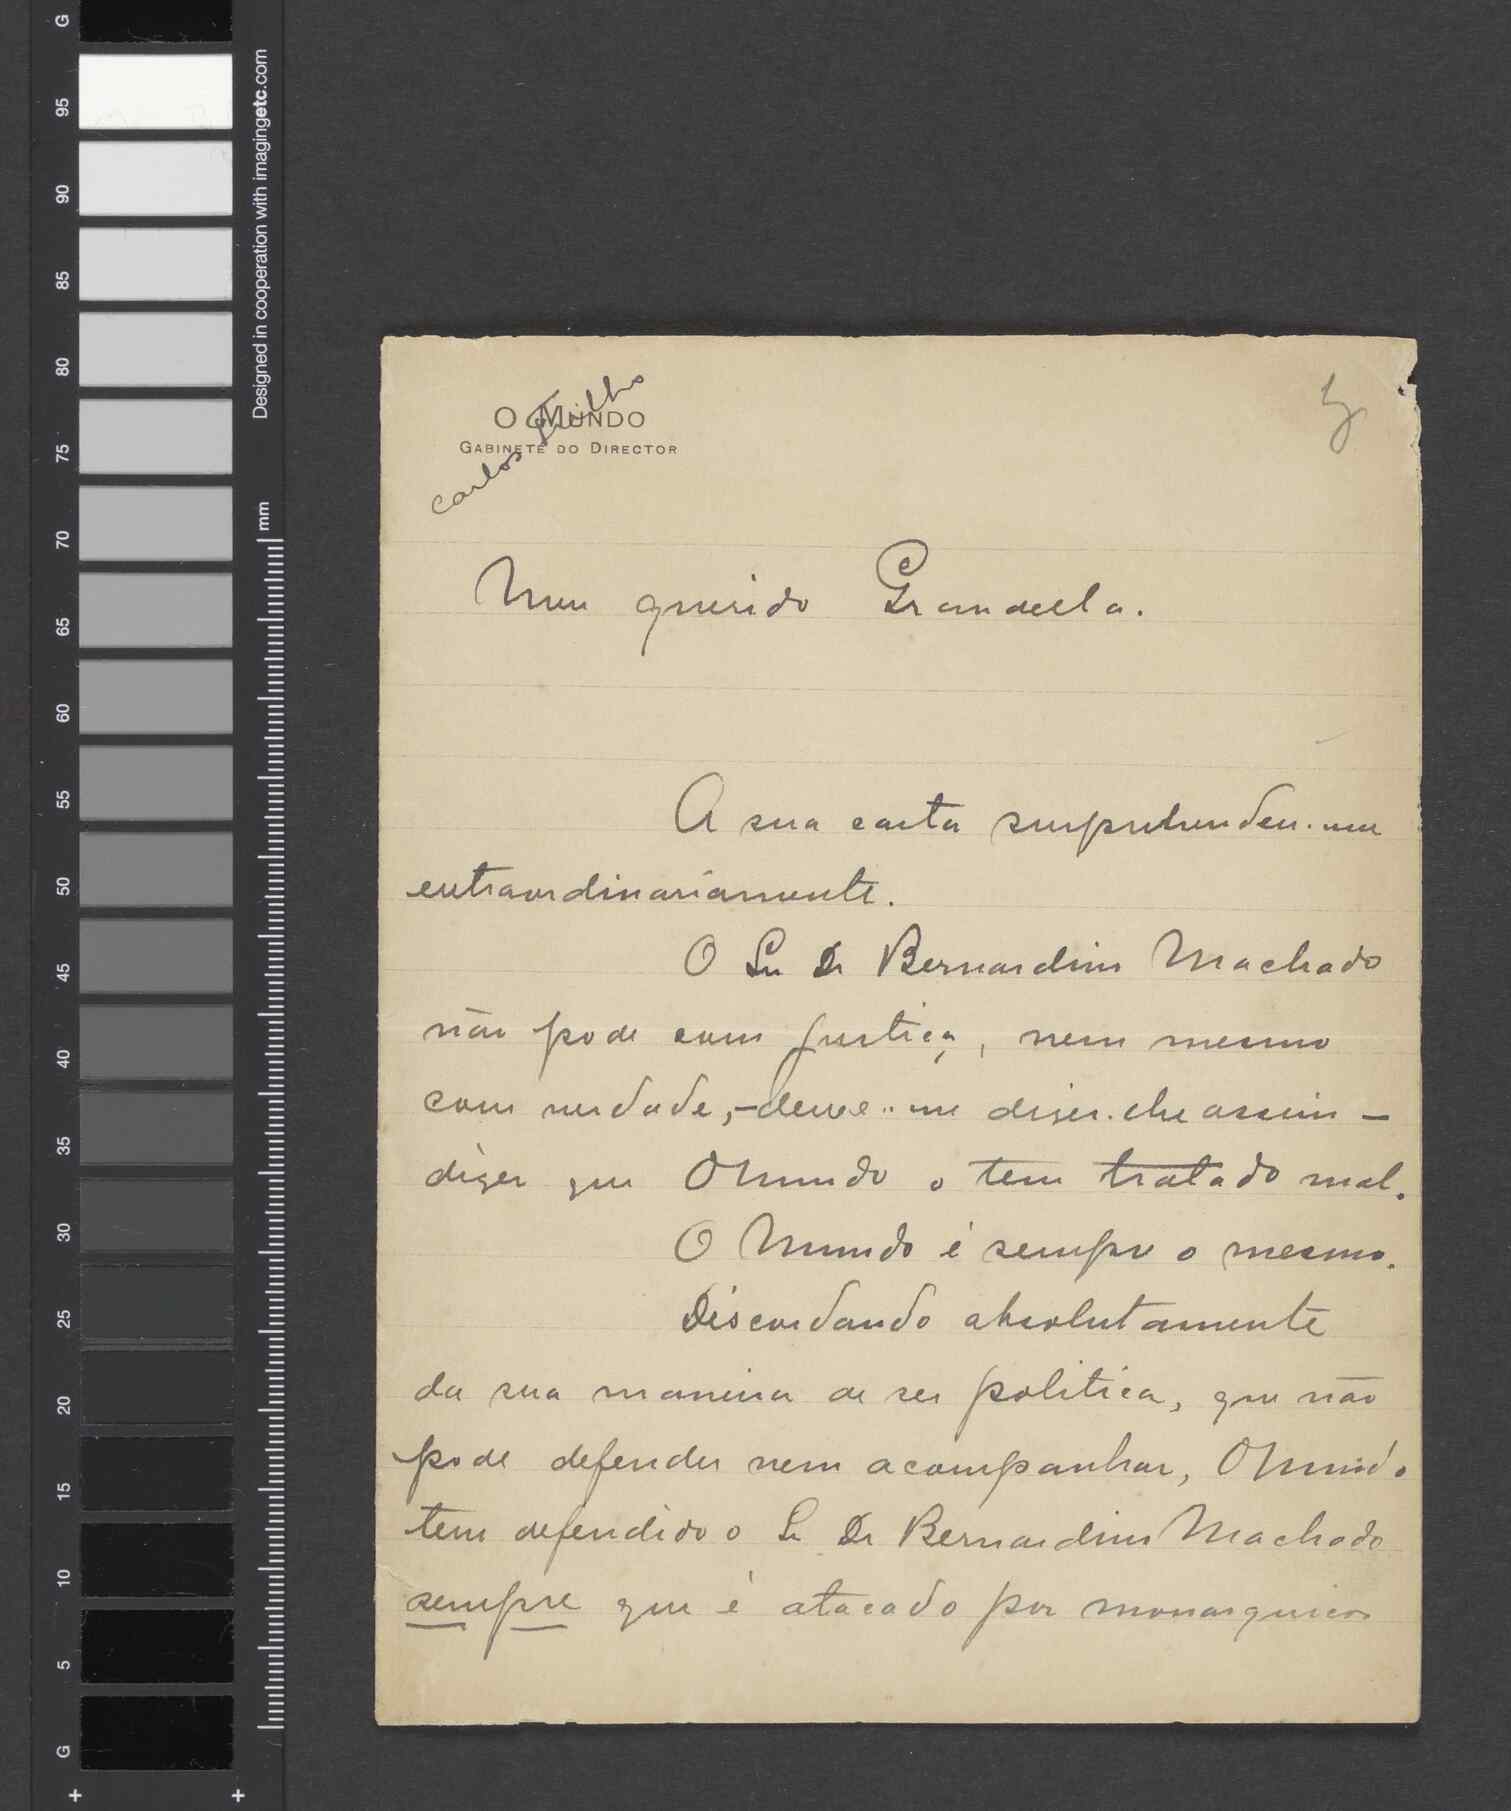 O MUNDO
GABINETE DO DIRECTOR
Carlos Trilho
5
Meu querido Grandella.
A sua carta surprehendeu-me
extraordinariamente.
O Snr Dr Bernardino Machado
não pode com justiça, nem mesmo
com verdade, - deixe-me dizer-lhe assim -
dizer que O Mundo o tem tratado mal.
O Mundo é sempre o mesmo.
Discordando absolutamente
da sua maneira de ser politica, que não
pode defender nem acompanhar, O Mundo
tem defendido o Sr Dr Bernardino Machado
sempre que é atacado por monarquicos
G
95
90
85
80
75
70
65
60
55
50
45
40
35
30
25
20
15
10
5
G
Designed in cooperation with imagingetc.com
mm